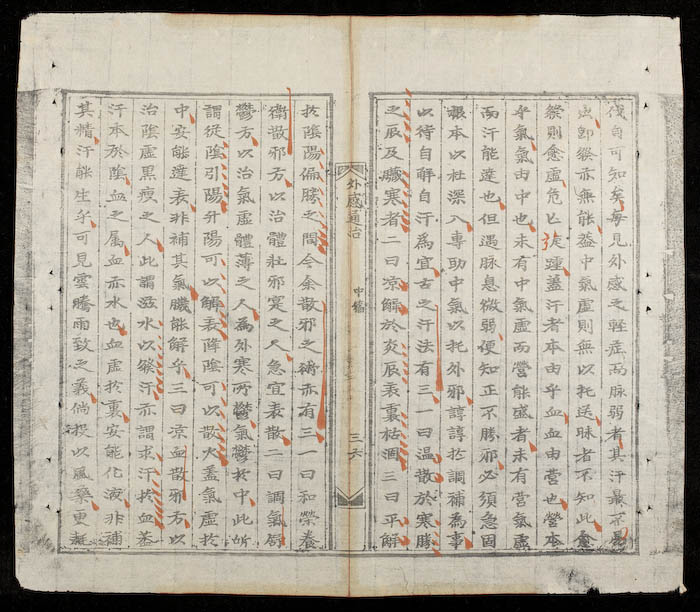 伐自可知矣每見外感之輕症而脉弱者其汗最不易
出卽發亦無能蓋中氣虛則無以托送昧者不知此愈
發則愈虛危亡踵蓋汗者本由乎血血由營也營本
乎氣氣由中也未有中氣虛而營能盛者未有營氣虛
而汗能達也但遇脉息微弱便知正不勝邪必須急固
根本以杜深入專助中氣以托外邪諄諄扵調補為事
以待自解自汗為宜古之汗法有三一曰温散於寒勝
之辰及臟寒者二曰凉解於炎辰表裏枯涸三曰平解
外感通治
中篇
三六
扵陰陽偏勝之間今余散邪之術亦有三一曰和榮養
衛散邪方以治體壯邪寔之人急宜表散二曰調氣舒
鬱方以治氣虛體薄之人為外寒所鬱氣鬱於中此所
謂從陰引陽升陽可以解表降陰可以散火盖氣虛扵
中安能達表非補其氣臟能解乎三曰凉血散邪方以
治陰虛黑瘦之人此謂滋水以發汗亦謂求汗扵血盖
汗本於陰血之属血亦水也血虛扵裏安能化液非補
其精汗能生乎可見雲騰雨致之義倘投以風藥更耗